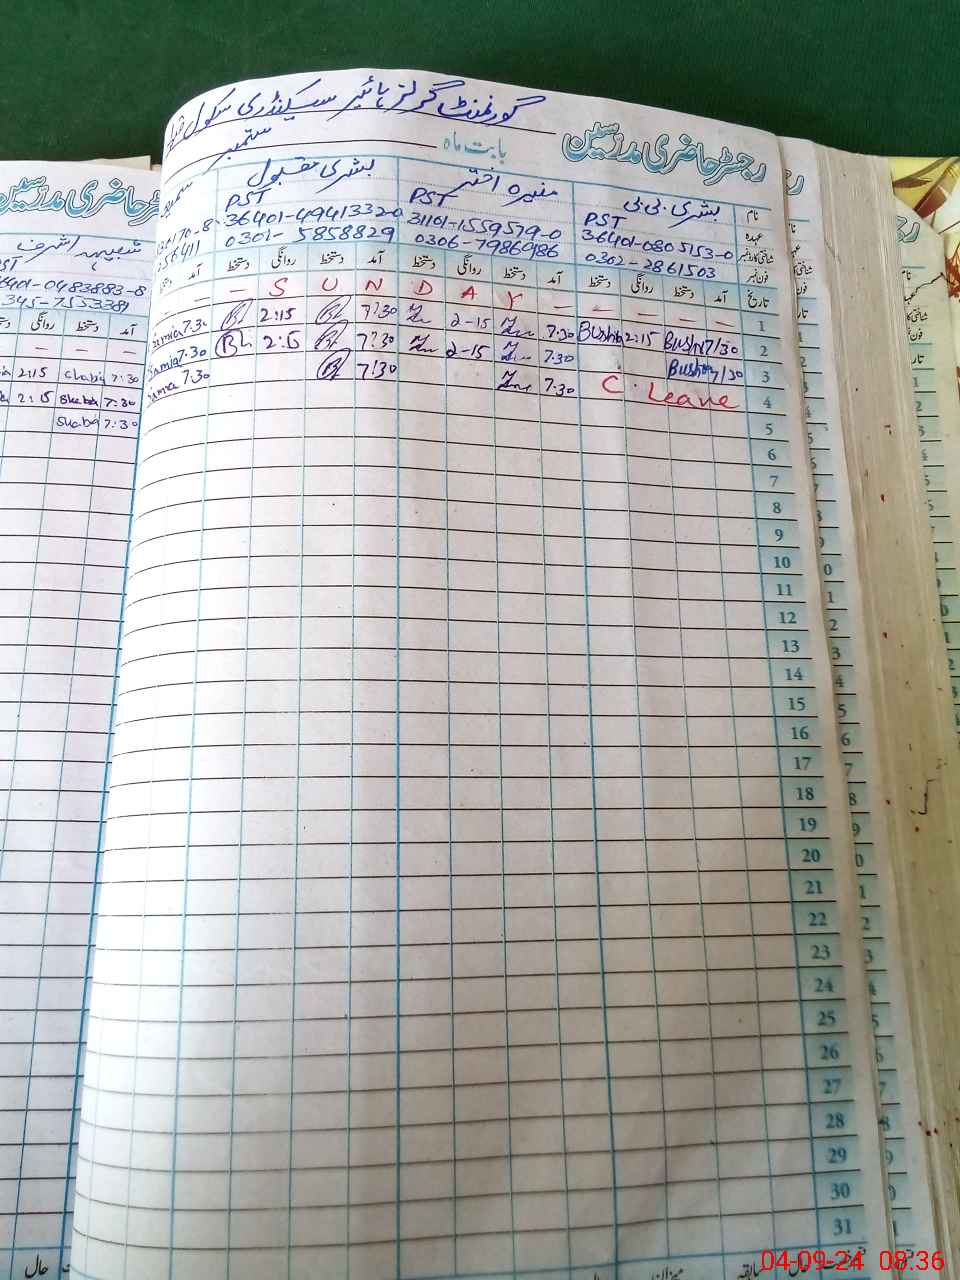 گورنمنٹ گرلز ہائیر سیکنڈری سکول
رجسٹر حاضری مدرسین
بابت ماہ ستمبر
نام بشریٰ بی بی منیرہ اختر بشریٰ مقبول
عہدہ PST PST PST
شناختی کارڈ نمبر 36401-0805153-0 31101-1559579-0 36401-4941332-0
فون نمبر 0302-2861503 0306-7986986 0301-5858829
تاریخ آمد دستخط روانگی دستخط آمد دستخط روانگی دستخط آمد دستخط روانگی دستخط آمد
1 — — S U N D A Y — — — —
2 7:30 Bushra 2:15 Bushra 7.30 2-15 7:30 2:15 7.30 Samia
3 7:30 Bushra 7:30 2-15 7:30 7.30 Samia
4 C. Leave 7:30 7:30 7.30
5
6
7
8
9
10
11
12
13
14
15
16
17
18
19
20
21
22
23
24
25
26
27
28
29
30
31
میزان سابقہ حال
رجسٹر حاضری مدرسین
شبیہہ اشرف
PST
345-7553381
آمد دستخط روانگی
7:30 2:15
7:30 2:15
7:30
04-09-24 08:36